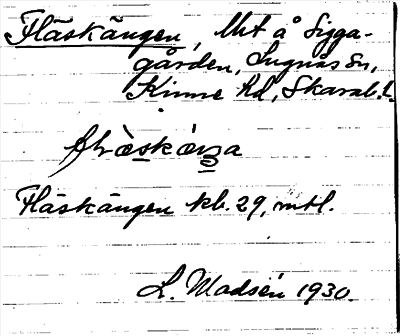 Fläskängen, Mit å Sigga-
gården, Lugnås Sn,
Kinne Hd, Skarab. l.
Fläskängen kb. 29, mtl.
L. Madsén 1930.